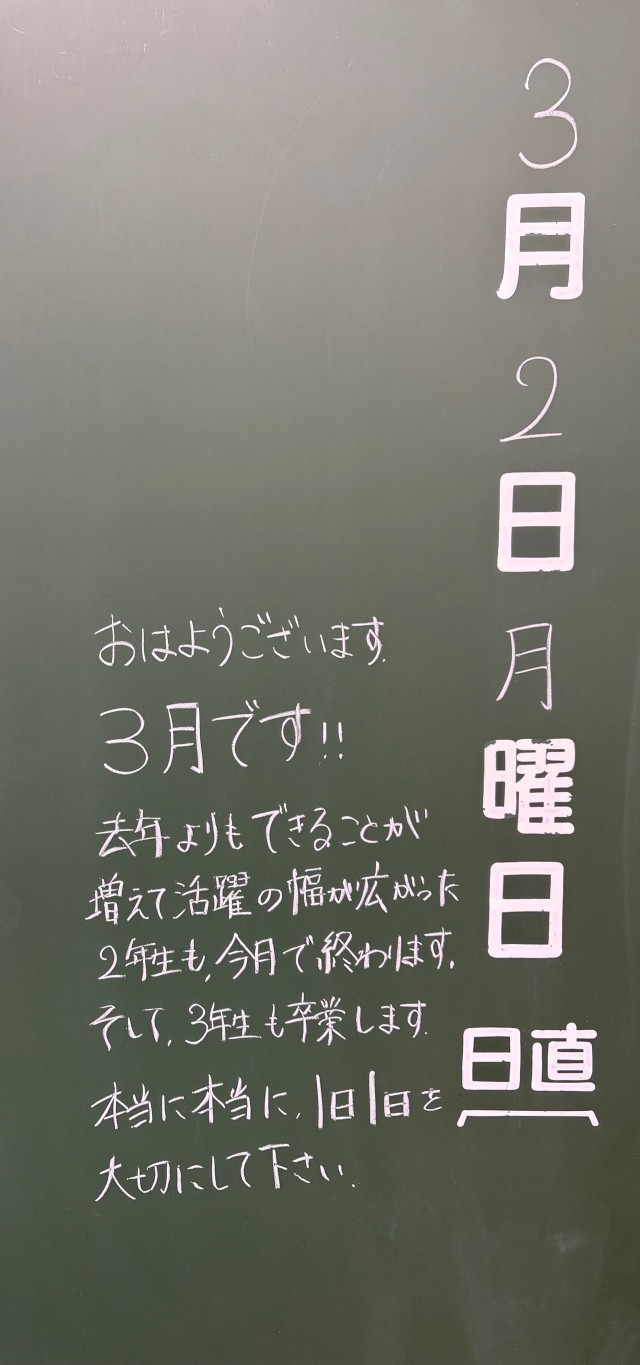 3月2日月曜日
日直
おはようございます.
3月です!!
去年よりもできることが
増えて活躍の幅が広がった
2年生も,今月で終わります.
そして,3年生も卒業します.
本当に本当に,1日1日を
大切にして下さい.